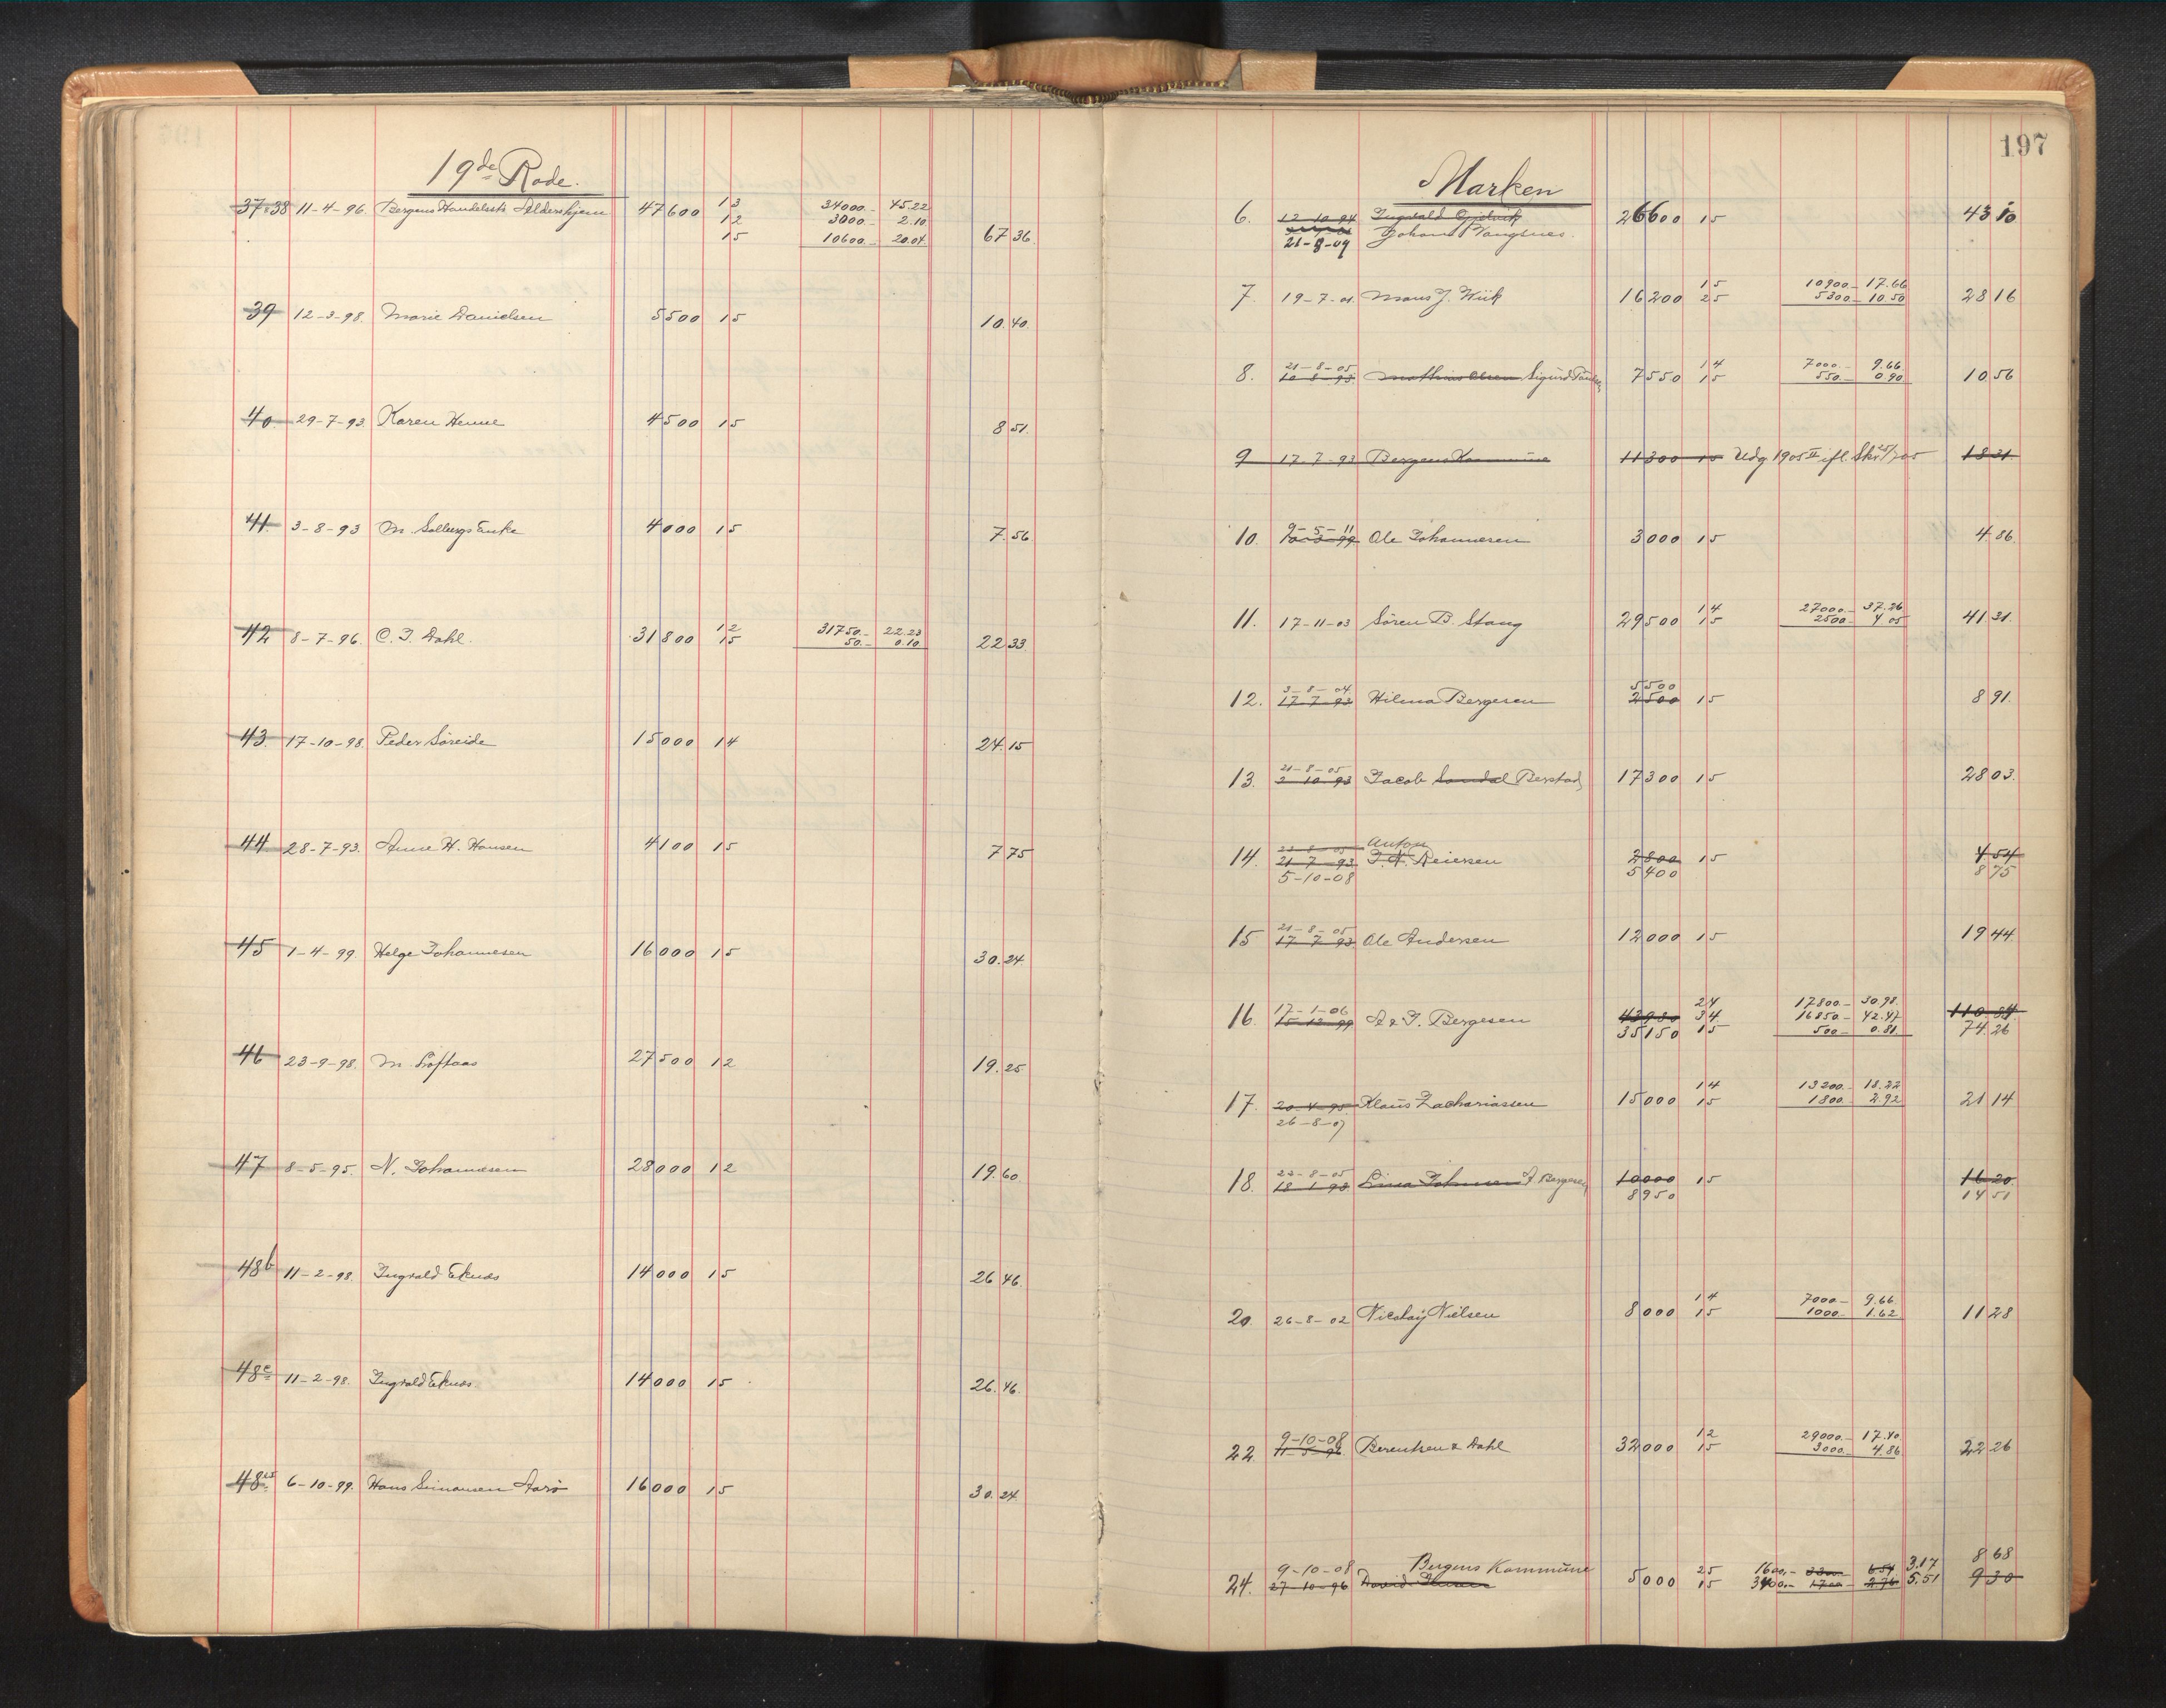 19de Rode.
37&38 11-4-96. Bergens Handelsstds Aldershjem 47600 13 34000.- 45.22
12 3000.- 2.10
15 10600.- 20.04 67 36
39 12-3-98. Marie Danielsen 5500 15 10.40
40 29-7-93 Karen Henne 4500 15 8 51.
41. 3-8-93 M. Solbergs Enke 4000 15 7.56
42 8-7-96. C. J. Dahl. 31800 12 31750.- 22.23
15 50.- 0.10 22 33
43. 17-10-98. Peder Söreide 15000 14 24.15
44 28-7-93. Anne H. Hansen 4100 15 7 75
45 1-4-99 Helge Johannesen 16000 15 30.24
46 23-9-98. M. Loftaas 27500 12 19.25
47 8-5-95. N. Johannesen 28000 12 19.60
48b 11-2-98. Ingvald Eknæs 14000 15 26 46.
48c 11-2-98. Ingvald Eknæs 14000 15 26.46.
48 6-10-99. Hans Simonsen Aarö 16000 15 30.24
197
Marken
6. 12-10-94 Ingvald
21-8-09 Johan Vangsnes. 26600 15 43 10
7. 19-7-01. Mons J. Wiik 16200 15 10900.- 17.66
25 5300.- 10.50 28 16
8. 21-8-05 7550 14 7000.- 9.66
10-8-93 Mathias Olsen Sigurd 15 550.- 0.90 10.56
9 17-7-93 Bergens Kommune 11300 15 Udg. 1905 II ifl. Skr. 25/7 05 18 31.
10. 9-5-11
10-3-99. Ole Johannesen 3000 15 4.86
11. 17-11-03 Sören B. Stang 29500 14 27000.- 37.26
15 2500.- 4 05 41 31.
12. 3-8-04. 5500
17-7-93 Hilma Bergesen 2500 15 8 91.
13. 21-8-05
2-10-93 Jacob Sandal Berstad 17300 15 28 03.
14. 22-8-05 Anton
21-7-93 J. N. Reiersen 2800 15 4 54
5-10-08 5400 8 75
15 21-8-05
17-7-93 Ole Andersen 12000 15 19 44
16. 17-1-06 24 17800.- 30.98.
15-12-99 A & J. Bergesen 43950 34 16850.- 42.47 110.84
35150 15 500.- 0.81. 74.26
17. 20-4-95 Klaus Zachariassen 15000 14 13200.- 18.22
26-8-07 15 1800.- 2.92 21 14
18. 22-8-05
18-1-93 Lina Johnsen A. Bergesen 10000 15 16 20.
8950 14 51
20. 26-8-02 Nicolay Nielsen 8000 14 7000.- 9.66.
15 1000.- 1.62 11 28
22. 9-10-08 12 29000.- 17.40.
11-5-96 Berentsen & Dahl 32000 15 3000.- 4.86 22 26
24. 9-10-08 Bergens Kommune 5000 25 1600.- 3300.- 6 54 3.17 8 68
27-10-96 David 15 3400.- 1700.- 2.76 5.51 9 30